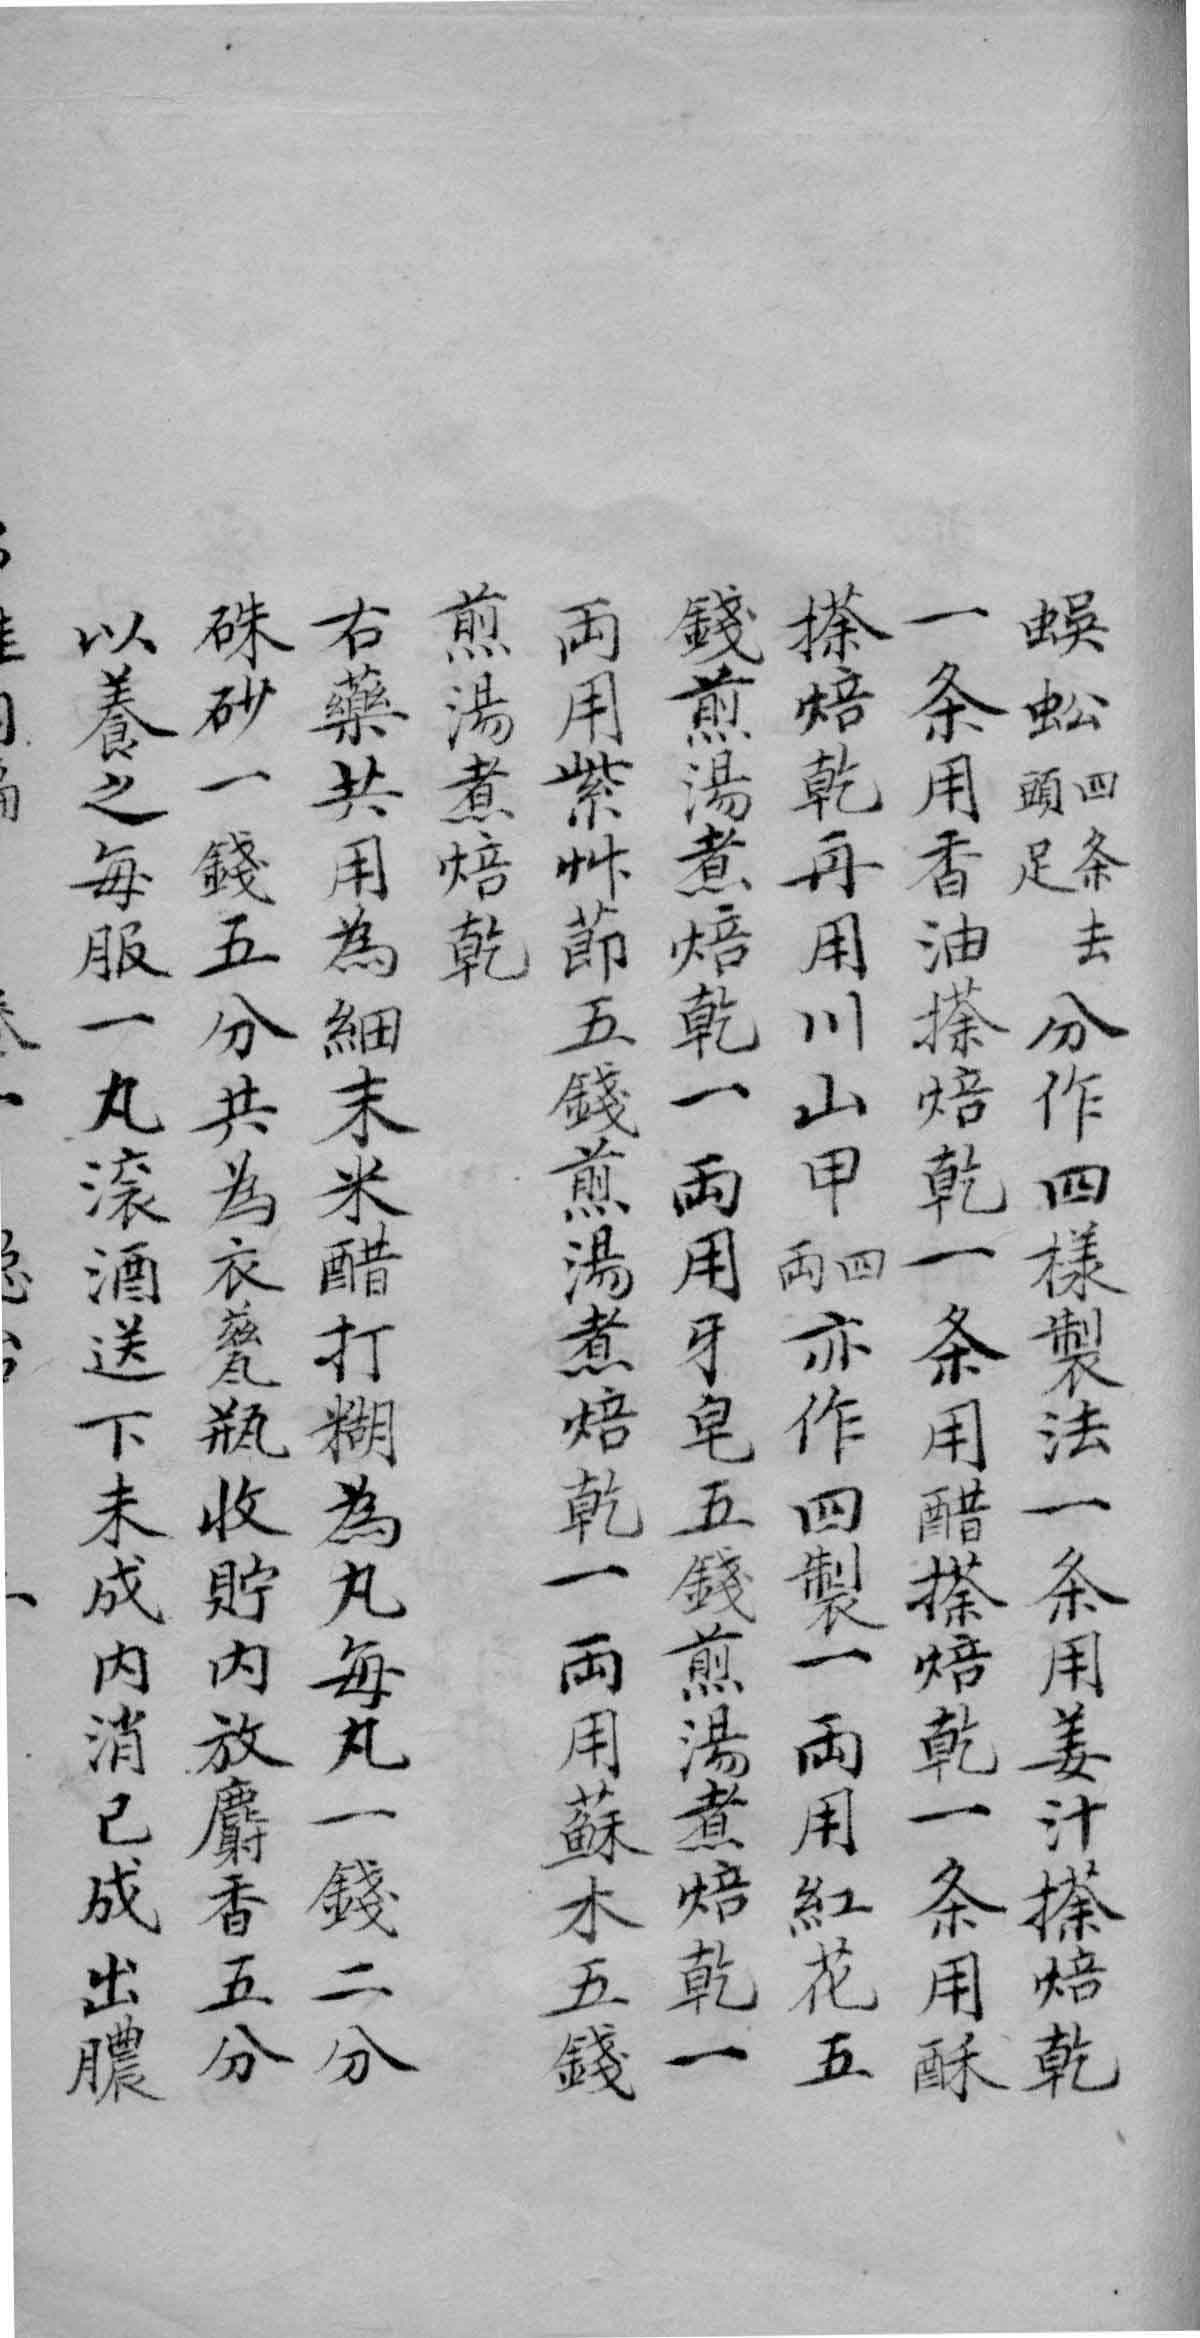 蜈蚣四条去頭足分作四樣製法一条用姜汁搽焙乾
一条用香油搽焙乾一条用醋搽焙乾一条用酥
搽焙乾再用川山甲四両亦作四製一両用紅花五
錢煎湯煮焙乾一両用牙皂五錢煎湯煮焙乾一
両用紫艸節五錢煎湯煮焙乾一両用蘇木五錢
煎湯煮焙乾
右藥共用為細末米醋打糊為丸每丸一錢二分
硃砂一錢五分共為衣甆瓶收貯内放麝香五分
以養之每服一丸滚酒送下未成内消已成出膿